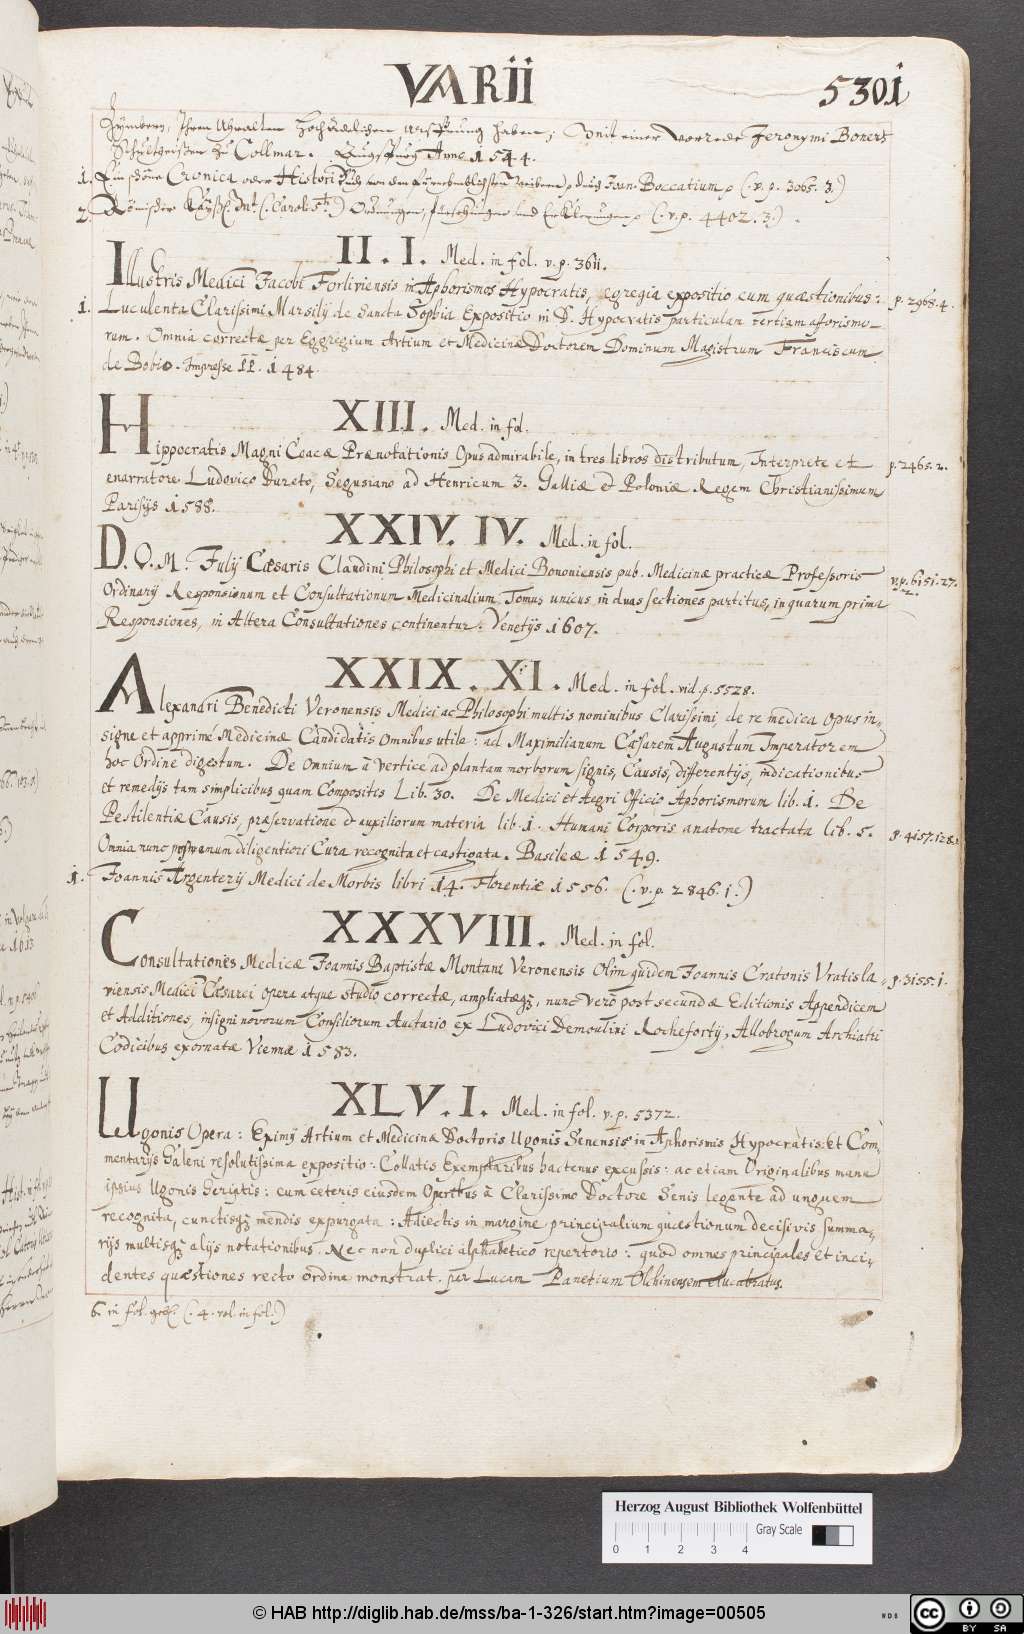 VARII
5301
Ihren Uhralten haben; Mit einer Vorrede Jeronymi Boners
Schultheissen zu Collmar. Augspurg Anno 1544.
1. Ein schöne Cronica oder Histori buch von den durch Joan. Boccatium (. v. p. 3065. 3.)
2. Römischer (. Caroli 5ti.) Ordnungen, und Erklerungen (. v. p. 4402. 3.)
II. I. Med. in fol. v. p. 3611.
Illustris Medici Jacobi Forliviensis in Aphorismos Hypocratis, egregia expositio cum quæstionibus: p. 2968. 4.
1. Luculenta Clarissimi Marsilÿ de Sancta Sophia Expositio in D. Hypocratis particulam tertiam afforismo-
rum. Omnia correcta per Eggregium Artium et Medicinæ Doctorem Dominum Magistrum Franciscum
de Bobio. Impresse II. 1484.
XIII. Med. in fol.
Hippocratis Magni Coacæ Prænotationis Opus admirabile, in tres libros distributum, Interprete et p. 2465. 2.
enarratore Ludovico Dureto, Segusiano ad Henricum 3. Galliæ et Poloniæ Regem Christianissimum
Parisÿs 1588.
XXIV. IV. Med. in fol.
D. O. M. Julÿ Cæsaris Claudini Philosophi et Medici Bononiensis pub. Medicinæ practicæ Professoris v. p. 6151. 27.
Ordinarÿ Responsionum et Consultationum Medicinalium Tomus unicus in duas sectiones partitus, in quarum prima
Responsiones, in Altera Consultationes continentur. Venetÿs 1607.
XXIX. XI. Med. in fol. vid. p. 5528.
Alexandri Benedicti Veronensis Medici ac Philosophi multis nominibus Clarissimi de re medica opus in-
signe et apprimé Medicinæ Candidatis omnibus utile: ad Maximilianum Cæsarem Augustum Imperatorem
hoc Ordine digestum. De Omnium à vertice ad plantam morborum signis, Causis, differentÿs, indicationibus
et remedÿs tam simplicibus quam Compositis Lib. 30. De Medici et Aegri Officio Aphorismorum lib. 1. De
Pestilentiæ Causis, præservatione et auxiliorum materia lib. 1. Humani Corporis anatome tractata lib. 5. p. 4157. 128.
Omnia nunc postremum diligentiori Cura recognita et castigata. Basileæ 1549.
1. Joannis Argenterÿ Medici de Morbis libri 14. Florentiæ 1556. (. v. p. 2846. 1.)
XXXVIII. Med. in fol.
Consultationes Medicæ Joannis Baptistæ Montani Veronensis Olim quidem Joannis Cratonis Vratisla- p. 3155. 1.
viensis Medici Cæsarei opera atque studio correctæ, ampliatæq3, nunc verò post secundæ Editionis Appendicem
et Additiones, insigni novorum Consiliorum Auctario ex Ludovici Demoulini Rochefortÿ, Allobrogum Archiatri
Codicibus exornatæ Viennæ 1583.
XLV. I. Med. in fol. v. p. 5372.
Ugonis Opera: Eximÿ Artium et Medicinæ Doctoris Ugonis Senensis in Aphorismis Hypocratis: et Com-
mentarÿs Galeni resolutissima expositio: Collatis Exemplaribus hactenus excussis: ac etiam Originalibus manu
ipsius Ugonis Scriptis: cum ceteris eiusdem Operibus à Clarissimo Doctore Senis legente ad unguem
recognita, cunctisq3 mendis expurgata: Adiectis in margine principalium quæstionum decisivis summa-
rÿs multisq3 alÿs notationibus. Nec non duplici alphabetico repertorio: quod omnes principales et inci-
dentes quæstiones recto ordine monstrat. per Lucam Panetium Olchinensem elucubratus.
6. in fol. (. 4. vol. in fol.)
Herzog August Bibliothek Wolfenbüttel
Gray Scale
0 1 2 3 4
© HAB http://diglib.hab.de/mss/ba-1-326/start.htm?image=00505
cc BY SA